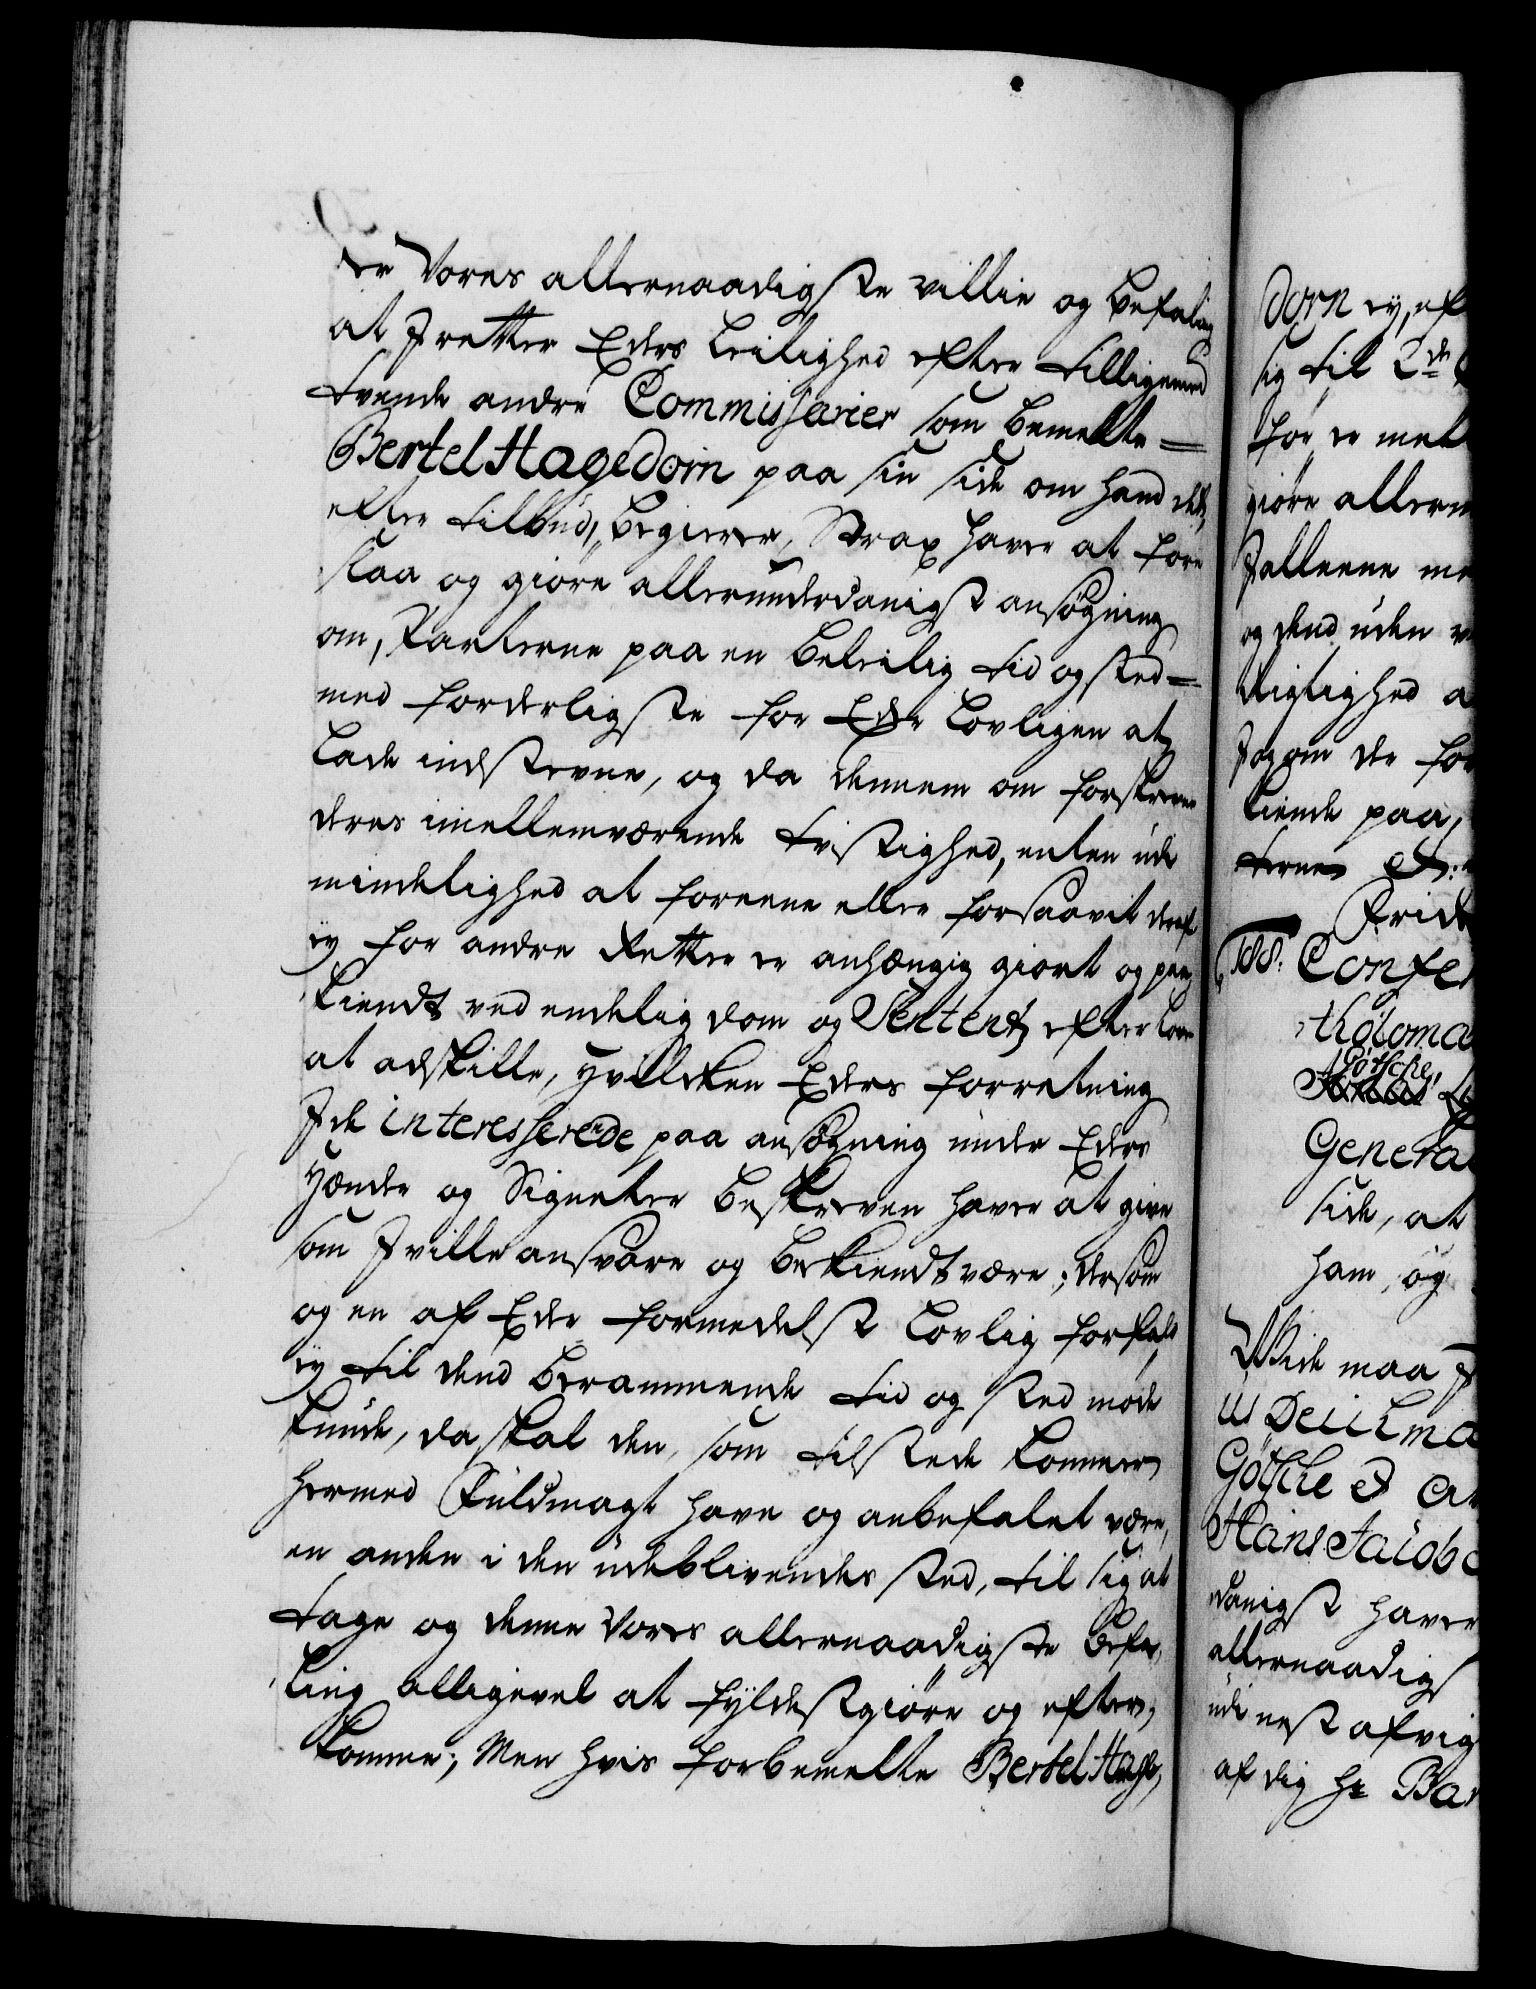 er Vores allernaadigste villie og befaling
at I retter Eders Leilighed efter tilligemed
tvende andre Commissarier som bemelte
Bertel Hagedorn paa sin side om hand det,
efter tilbud, begierer, Strax haver at fore
slaa og giøre allerunderdanigst ansøgning
om, Parterne paa en beleilig tid og sted
med forderligste for Eder Lovligen at
lade indstevne, og da dennem om forskrevne
deres imellemværende tvistighed, enten udi
mindelighed at foreene eller forsaavit deraf
ej for andre Retter er anhængig giort og paa
kiendt ved endelig dom og Sententz efter Loven
at adskille, hvilcken Eders forretning
I de interesserende paa ansøgning under Eders
hænder og Signeter beskreven haver at give
som I ville ansvare og bekiendt være; dersom
og en af Eder formedelst lovlig forfald
ej til dend berammende tid og sted møde
kunde, da skal den, som tilstede kommer
hermed Fuldmagt have og anbefalet være,
en anden i den udeblivendes sted, til sig at
tage og denne Vores allernaadigste befa,
ling alligevel at fyldestgiøre og efter,
komme; Men hvis forbemelte Bertel Hage,
dorn ej, ef
sig til 2de
for er mel
giøre allern
I alleene me
og dend uden
vigtighed a
I og om de for
kiende paa,
terne
Frid
188. Confe
tholoma
Götsche,
Genera
side, at
ham, og
Vide maa I
us Deichma
Götsche &
Hans Jacob
danigst haver
allernaadigst
udi nest afvig
af dig Hr Bar